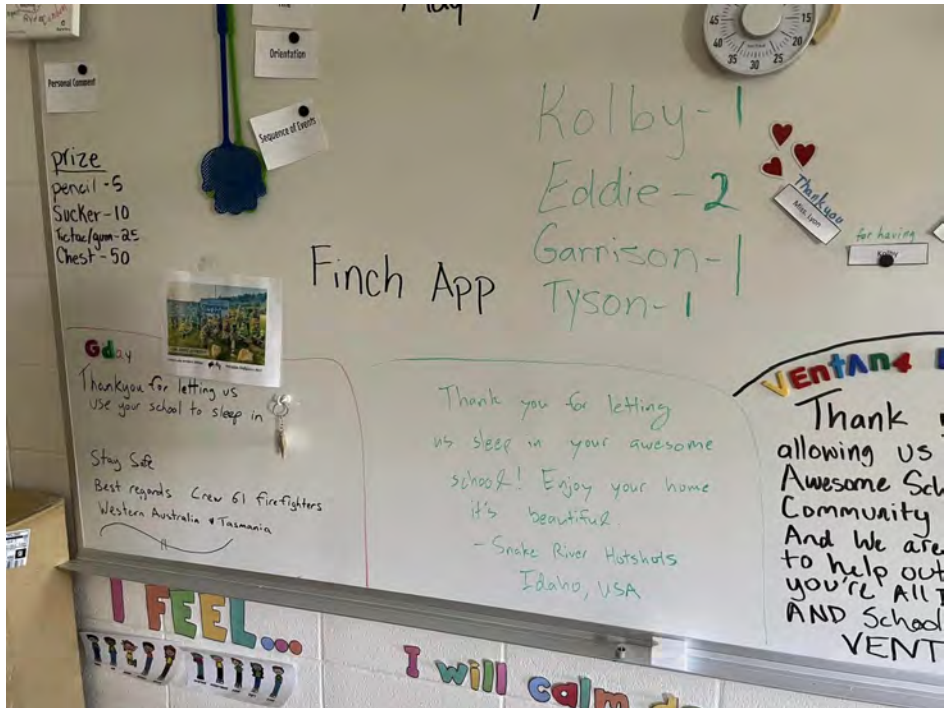 Personal Comment
Orientation
Sequence of Events
prize
pencil - 5
Sucker - 10
Tictac/gum - 25
Chest - 50
Finch App
Kolby - 1
Eddie - 2
Garrison - 1
Tyson - 1
45
40
35
30
25
20
15
Thankyou
Miss. Lyon
for having
Gday
Thankyou for letting us
use your school to sleep in
Stay Safe
Best regards Crew 61 firefighters
Western Australia & Tasmania
Thank you for letting
us sleep in your awesome
school! Enjoy your home
it's beautiful.
- Snake River Hotshots
Idaho, USA
VENTANA
Thank
allowing us
Awesome Sch
Community
And We are
to help out
you're All
AND School
VENT
I FEEL...
I will calm